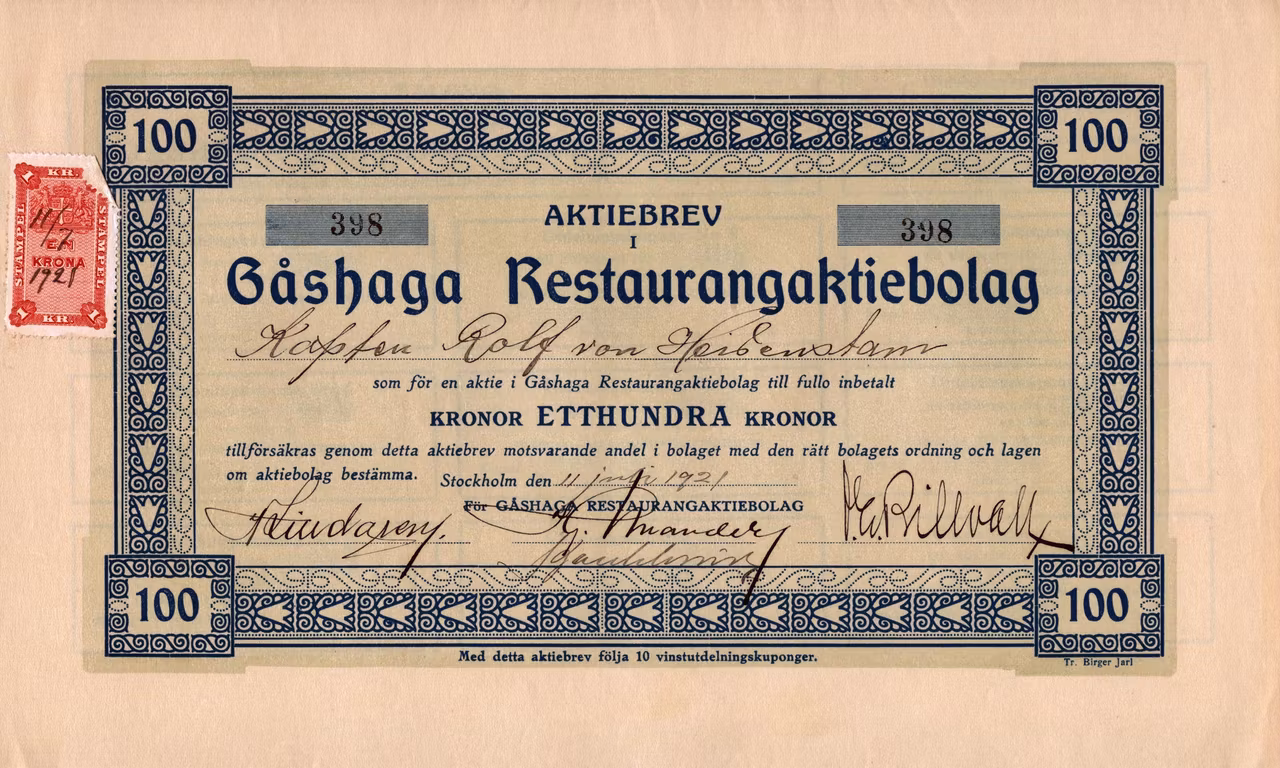 100
100
1 KR.
STÄMPEL
STÄMPEL
11/7
EN
KRONA
1921
1 KR. 1
398
AKTIEBREV
398
I
Gåshaga Restaurangaktiebolag
Kapten Rolf von Heidenstam
som för en aktie i Gåshaga Restaurangaktiebolag till fullo inbetalt
KRONOR ETTHUNDRA KRONOR
tillförsäkras genom detta aktiebrev motsvarande andel i bolaget med den rätt bolagets ordning och lagen
om aktiebolag bestämma. Stockholm den 11 juli 1921
För GÅSHAGA RESTAURANGAKTIEBOLAG
100
100
Med detta aktiebrev följa 10 vinstutdelningskuponger.
Tr. Birger Jarl